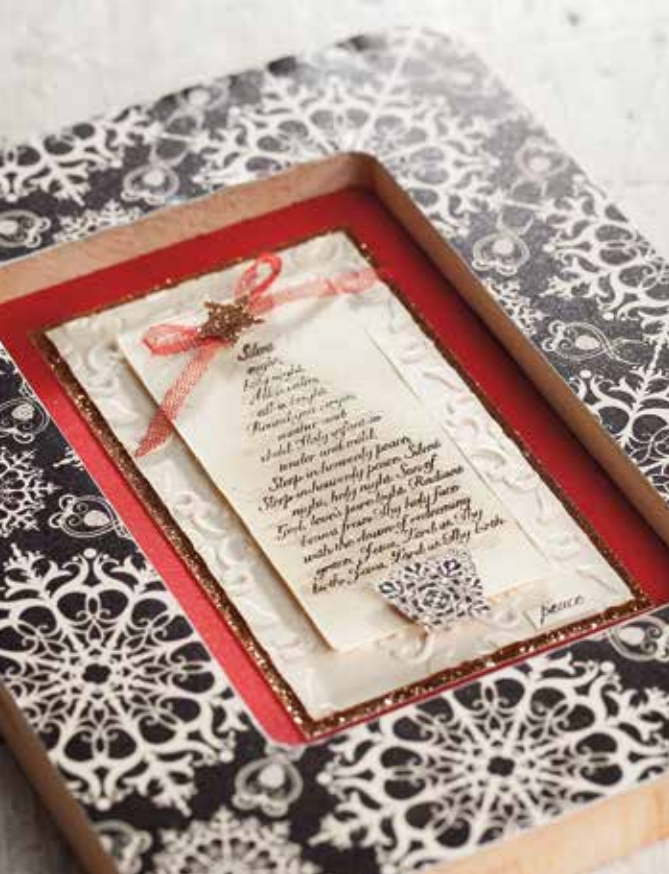 Silent
night,
holy night.
All is calm,
all is bright.
Round yon virgin
mother and
child. Holy infant so
tender and mild.
Sleep in heavenly peace,
Sleep in heavenly peace. Silent
night, holy night. Son of
God, love's pure light. Radiant
beams from Thy holy face
with the dawn of redeeming
grace, Jesus, Lord at Thy
birth. Jesus, Lord at Thy birth
peace